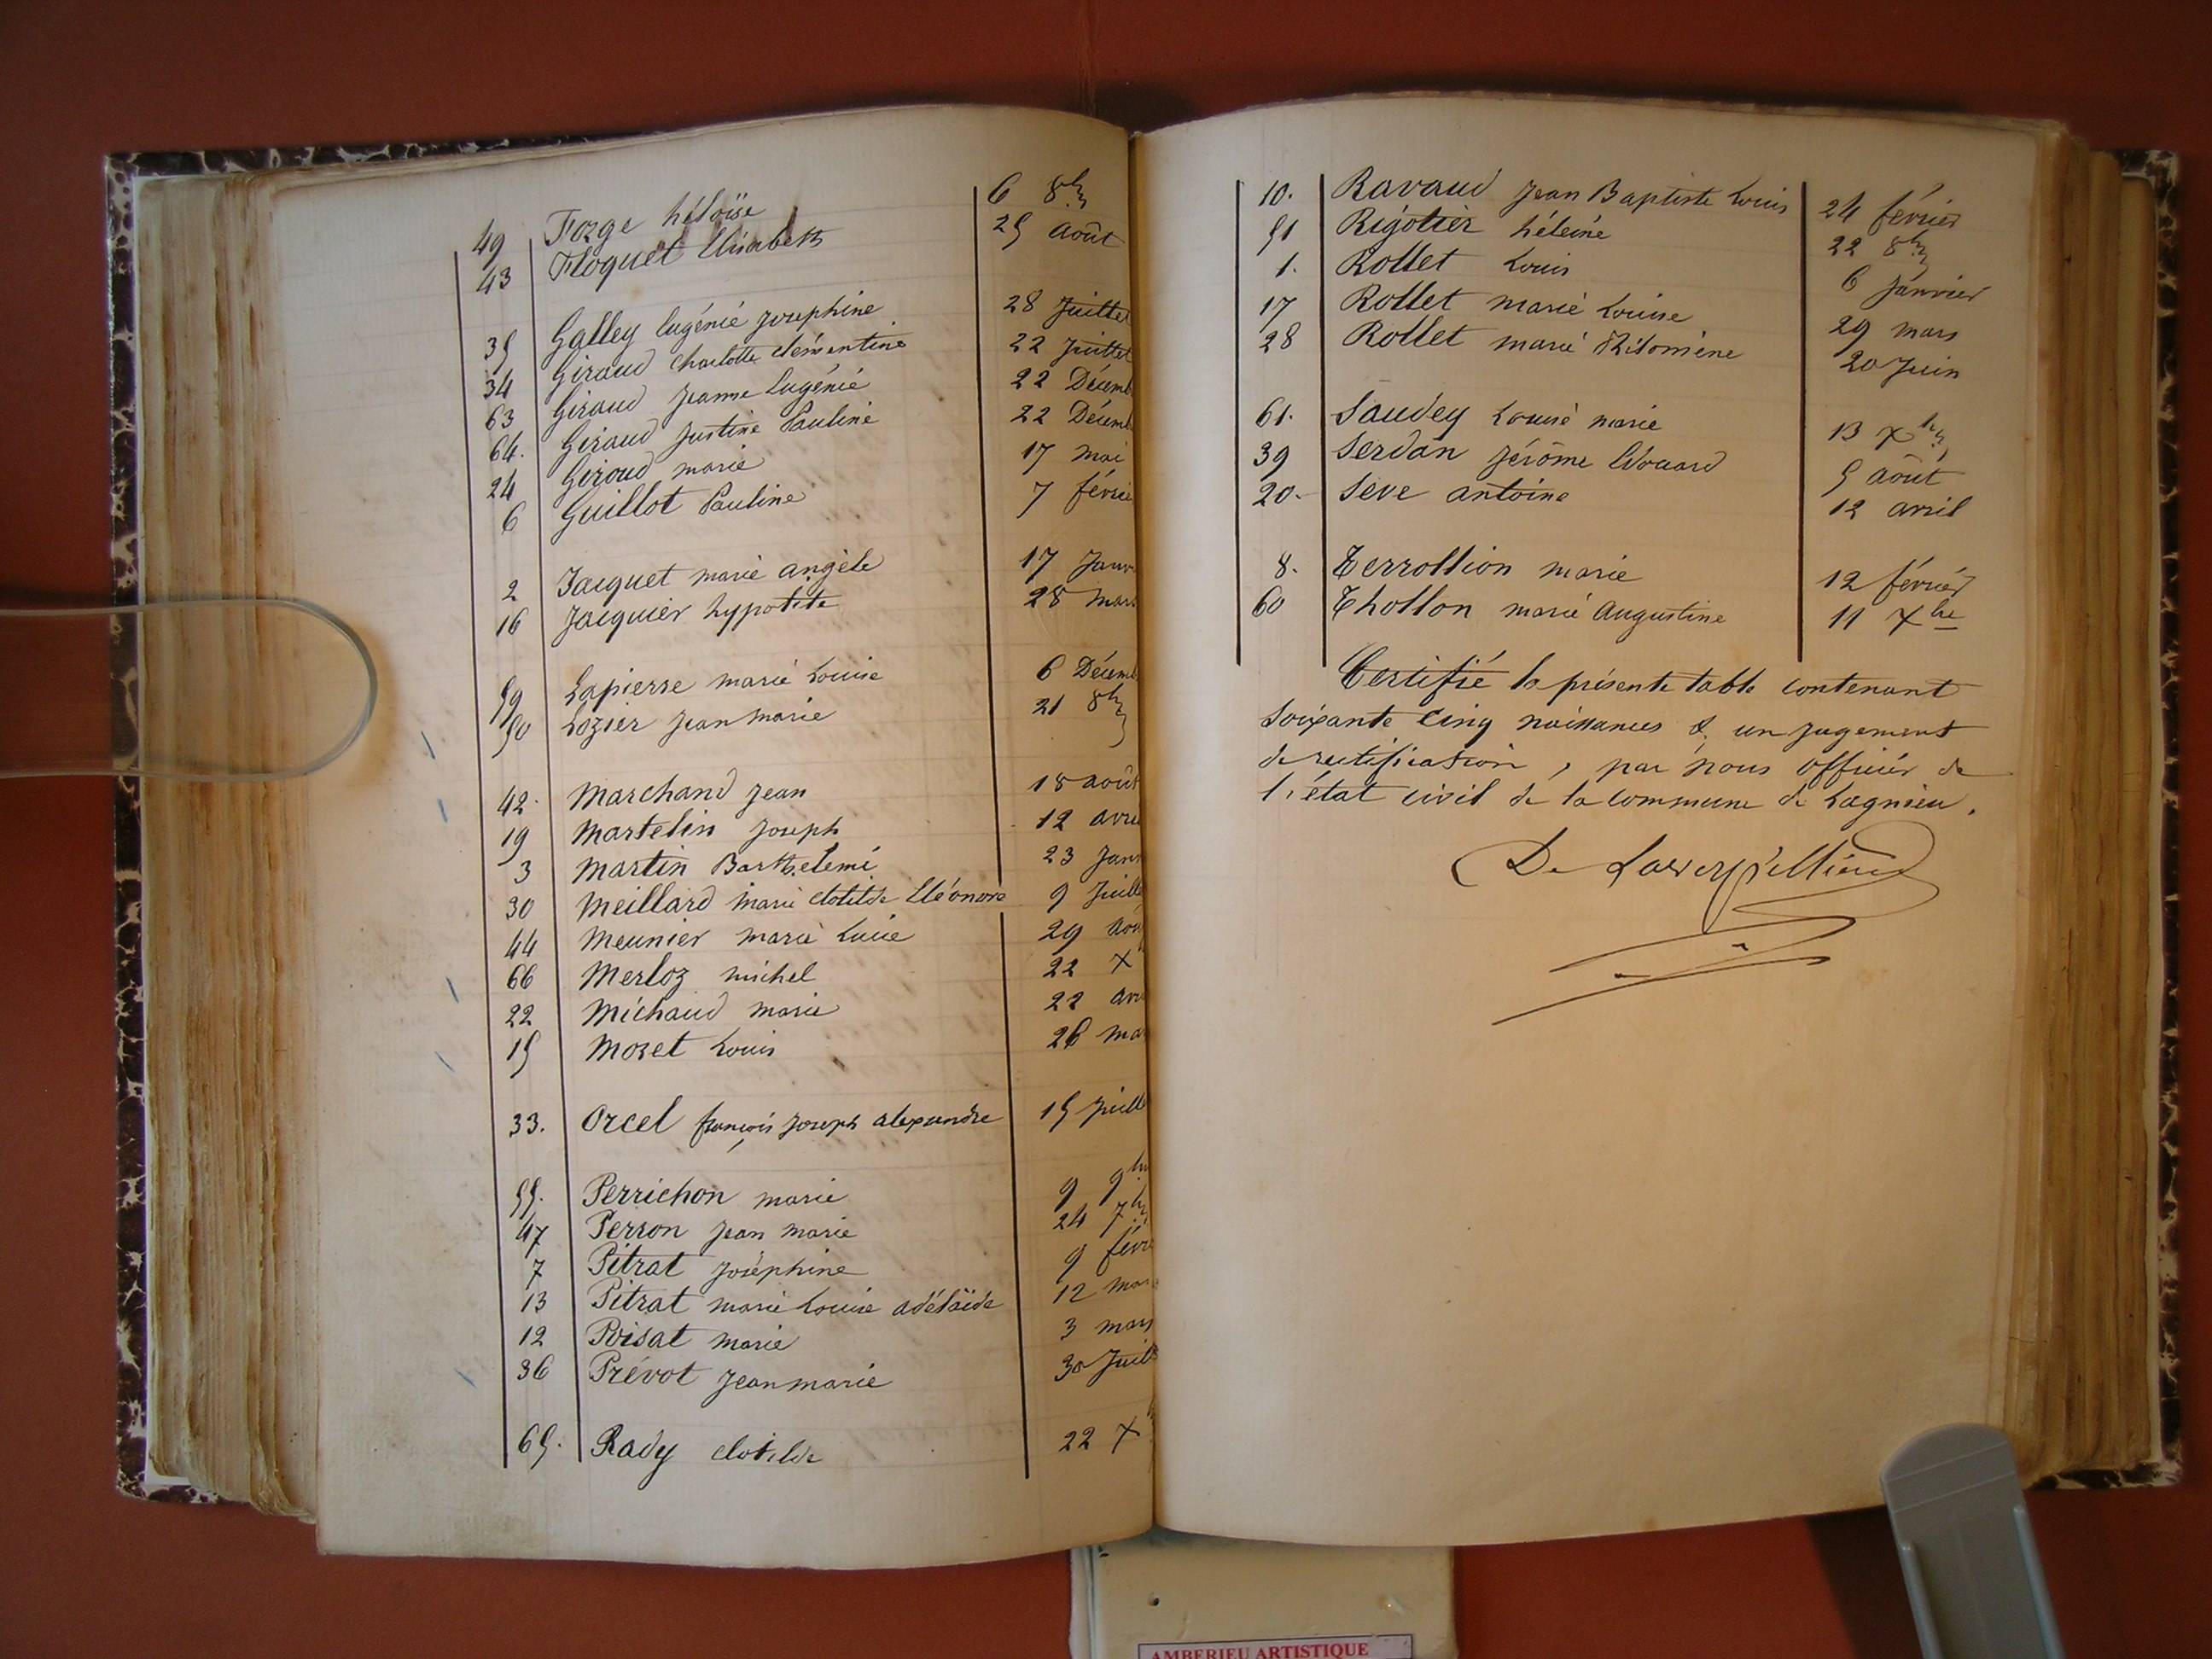 49 Forge héloïse 6 8bre
43 Floquet Elisabeth 25 août
35 Galley Eugénie Joséphine 28 Juillet
34 Giraud Charlotte Clémentine 22 Juillet
63 Giraud Jeanne Eugénie 22 Décemb
64. Giraud Justine Pauline 22 Décemb
24 Giroud marie 17 mai
6 Guillot Pauline 7 févrie
2 Jacquet marie angèle 17 Janv
16 Jacquier hypolite 28 mars
59 Lapierre marie Louise 6 Décemb
50 Lozier Jean marie 21 8bre
42. Marchand Jean 18 août
19 Martelin Joseph 12 avri
3 Martin Barthélemi 23 Janv
30 Meillard marie clotilde Eléonore 9 Juille
44 Meunier marie Lucie 29 Aoû
66 Merloz michel 22 X
22 Michaud marie 22 avr
15 Moret Louis 26 ma
33. Orcel françois Joseph alexandre 15 Juille
55. Perrichon marie 9 9bre
47 Perron Jean marie 24 7bre
7 Pitrat Joséphine 9 févri
13 Pitrat marie Louise adélaïde 12 mars
12 Poisat marie 3 mars
36 Prévot Jean marie 30 Juill
65. Rady clotilde 22 X
10. Ravaud Jean Baptiste Louis 24 février
51 Rigotier héleine 22 8bre
1. Rollet Louis 6 Janvier
17 Rollet marie Louise 29 mars
28 Rollet marie Philomène 20 Juin
61. Saudey Louise marie 13 Xbre
39 Serdan Jérôme Edouard 5 août
20. Seve antoine 12 avril
8. Terrollion marie 12 février
60 Thollon marie Augustine 11 Xbre
Certifié la présente table contenant
soixante cinq naissances & un jugement
de rectification, par nous officier de
l'état civil de la commune de Lagnieu.